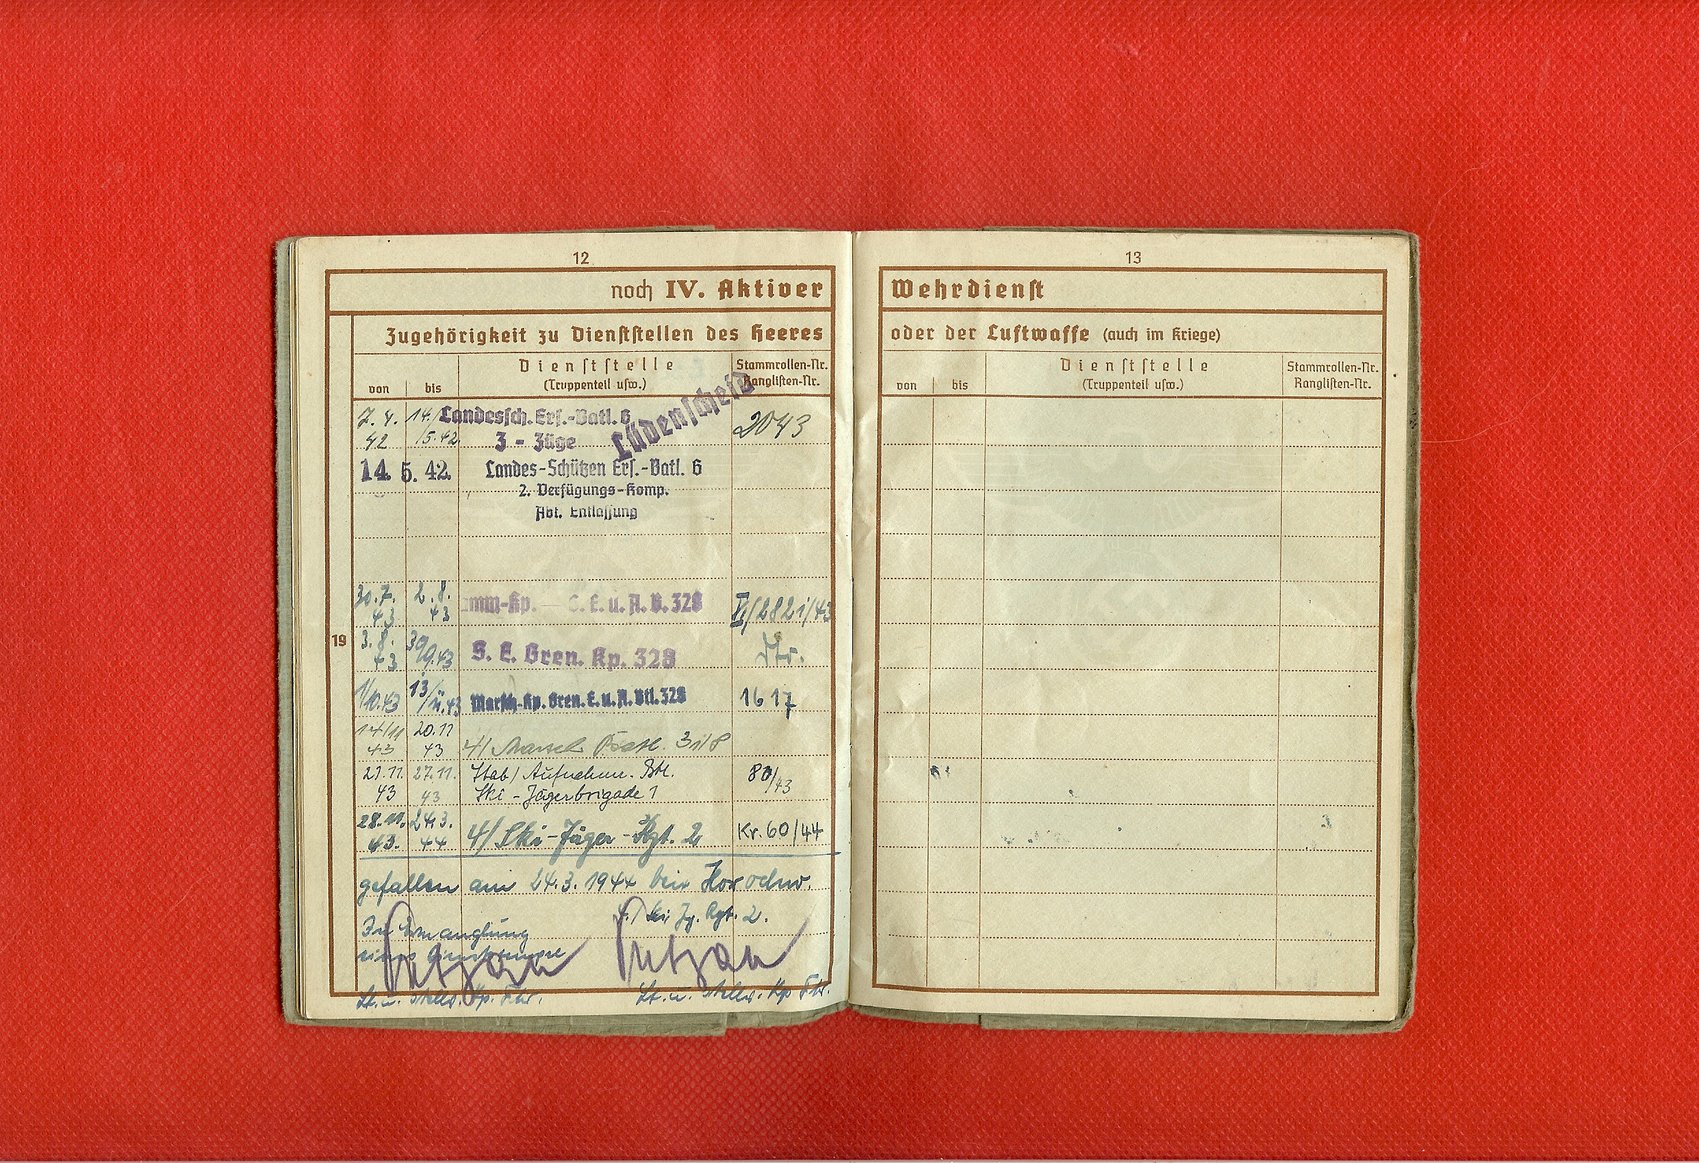 12
noch IV. Aktiver
Zugehörigkeit zu Dienststellen des Heeres
von
bis
Dienststelle
(Truppenteil usw.)
Stammrollen-Nr.
Ranglisten-Nr.
7.4.
42
14/
/5.42
Landessch. Ers.-Batl. 6
Z - Züge
Lüdenscheid
2043
14. 5. 42.
Landes-Schützen Ers.-Batl. 6
2. Verfügungs-Komp.
Abt. Entlassung
19
30.7.
43
2.8.
43
mm-Kp. E. u. A. B. 328
3.8.
43
30/9.43
S. E. Gren. Kp. 328
1/10.43
13/
/11.43
Marsch-Kp. Gren. E. u. A. Btl. 328
1617
14/11
43
20.11
43
4/ Marsch
27.11.
43
43
Stab/ Aufnahm. Btl.
Ski-Jägerbrigade 1
/43
28.11.
43.
24.3.
44
4/ Ski-Jäger-Rgt. 2
Kr. 60/44
gefallen am 24.3.1944 bei
Jg. Rgt. 2.
In Ermanglung
eines
Lt. u. stellv. Kp. Fhr.
Lt. u. stellv. Kp. Fhr.
13
Wehrdienst
oder der Luftwaffe (auch im Kriege)
von
bis
Dienststelle
(Truppenteil usw.)
Stammrollen-Nr.
Ranglisten-Nr.